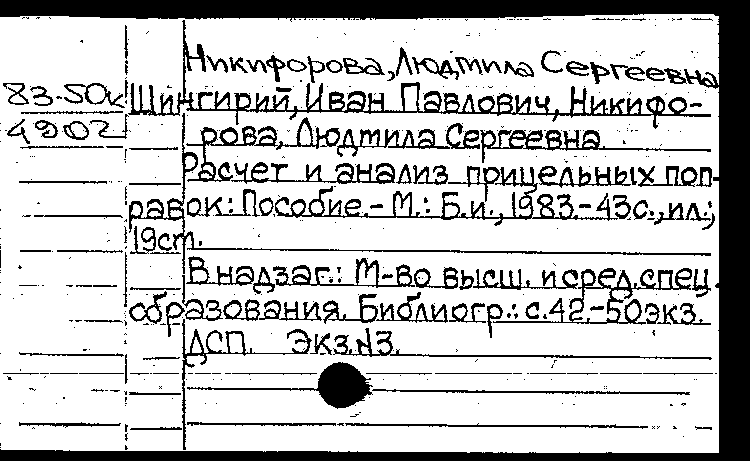 Никифорова, Людмила Сергеевна
83-50к Шингирий, Иван Павлович, Никифо-
4902 рова, Людмила Сергеевна.
Расчет и анализ прицельных поп-
равок: Пособие.- М.: Б.и., 1983.-43с., ил.;
19см.
В надзаг.: М-во высш. и сред. спец.
образования. Библиогр.: с.42.-50экз.
ДСП. Экз.N3.